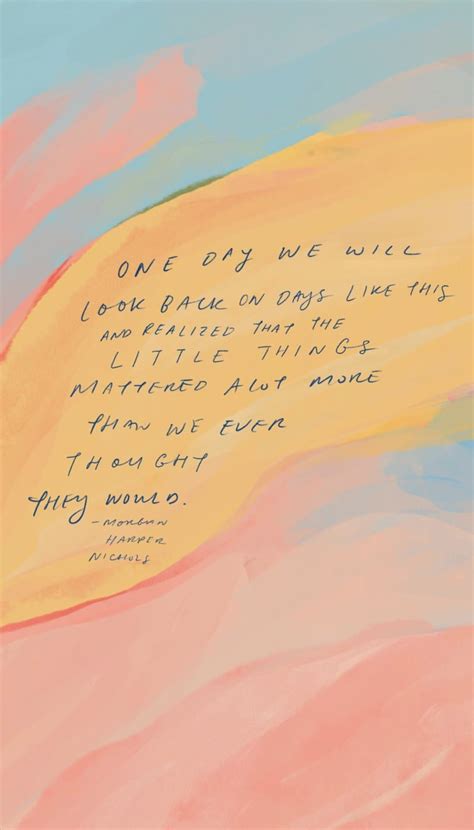 ONE DAY WE WILL
LOOK BACK ON DAYS LIKE THIS
AND REALIZED THAT THE
LITTLE THINGS
MATTERED A LOT MORE
THAN WE EVER
THOUGHT
THEY WOULD.
-MORGAN
HARPER
NICHOLS